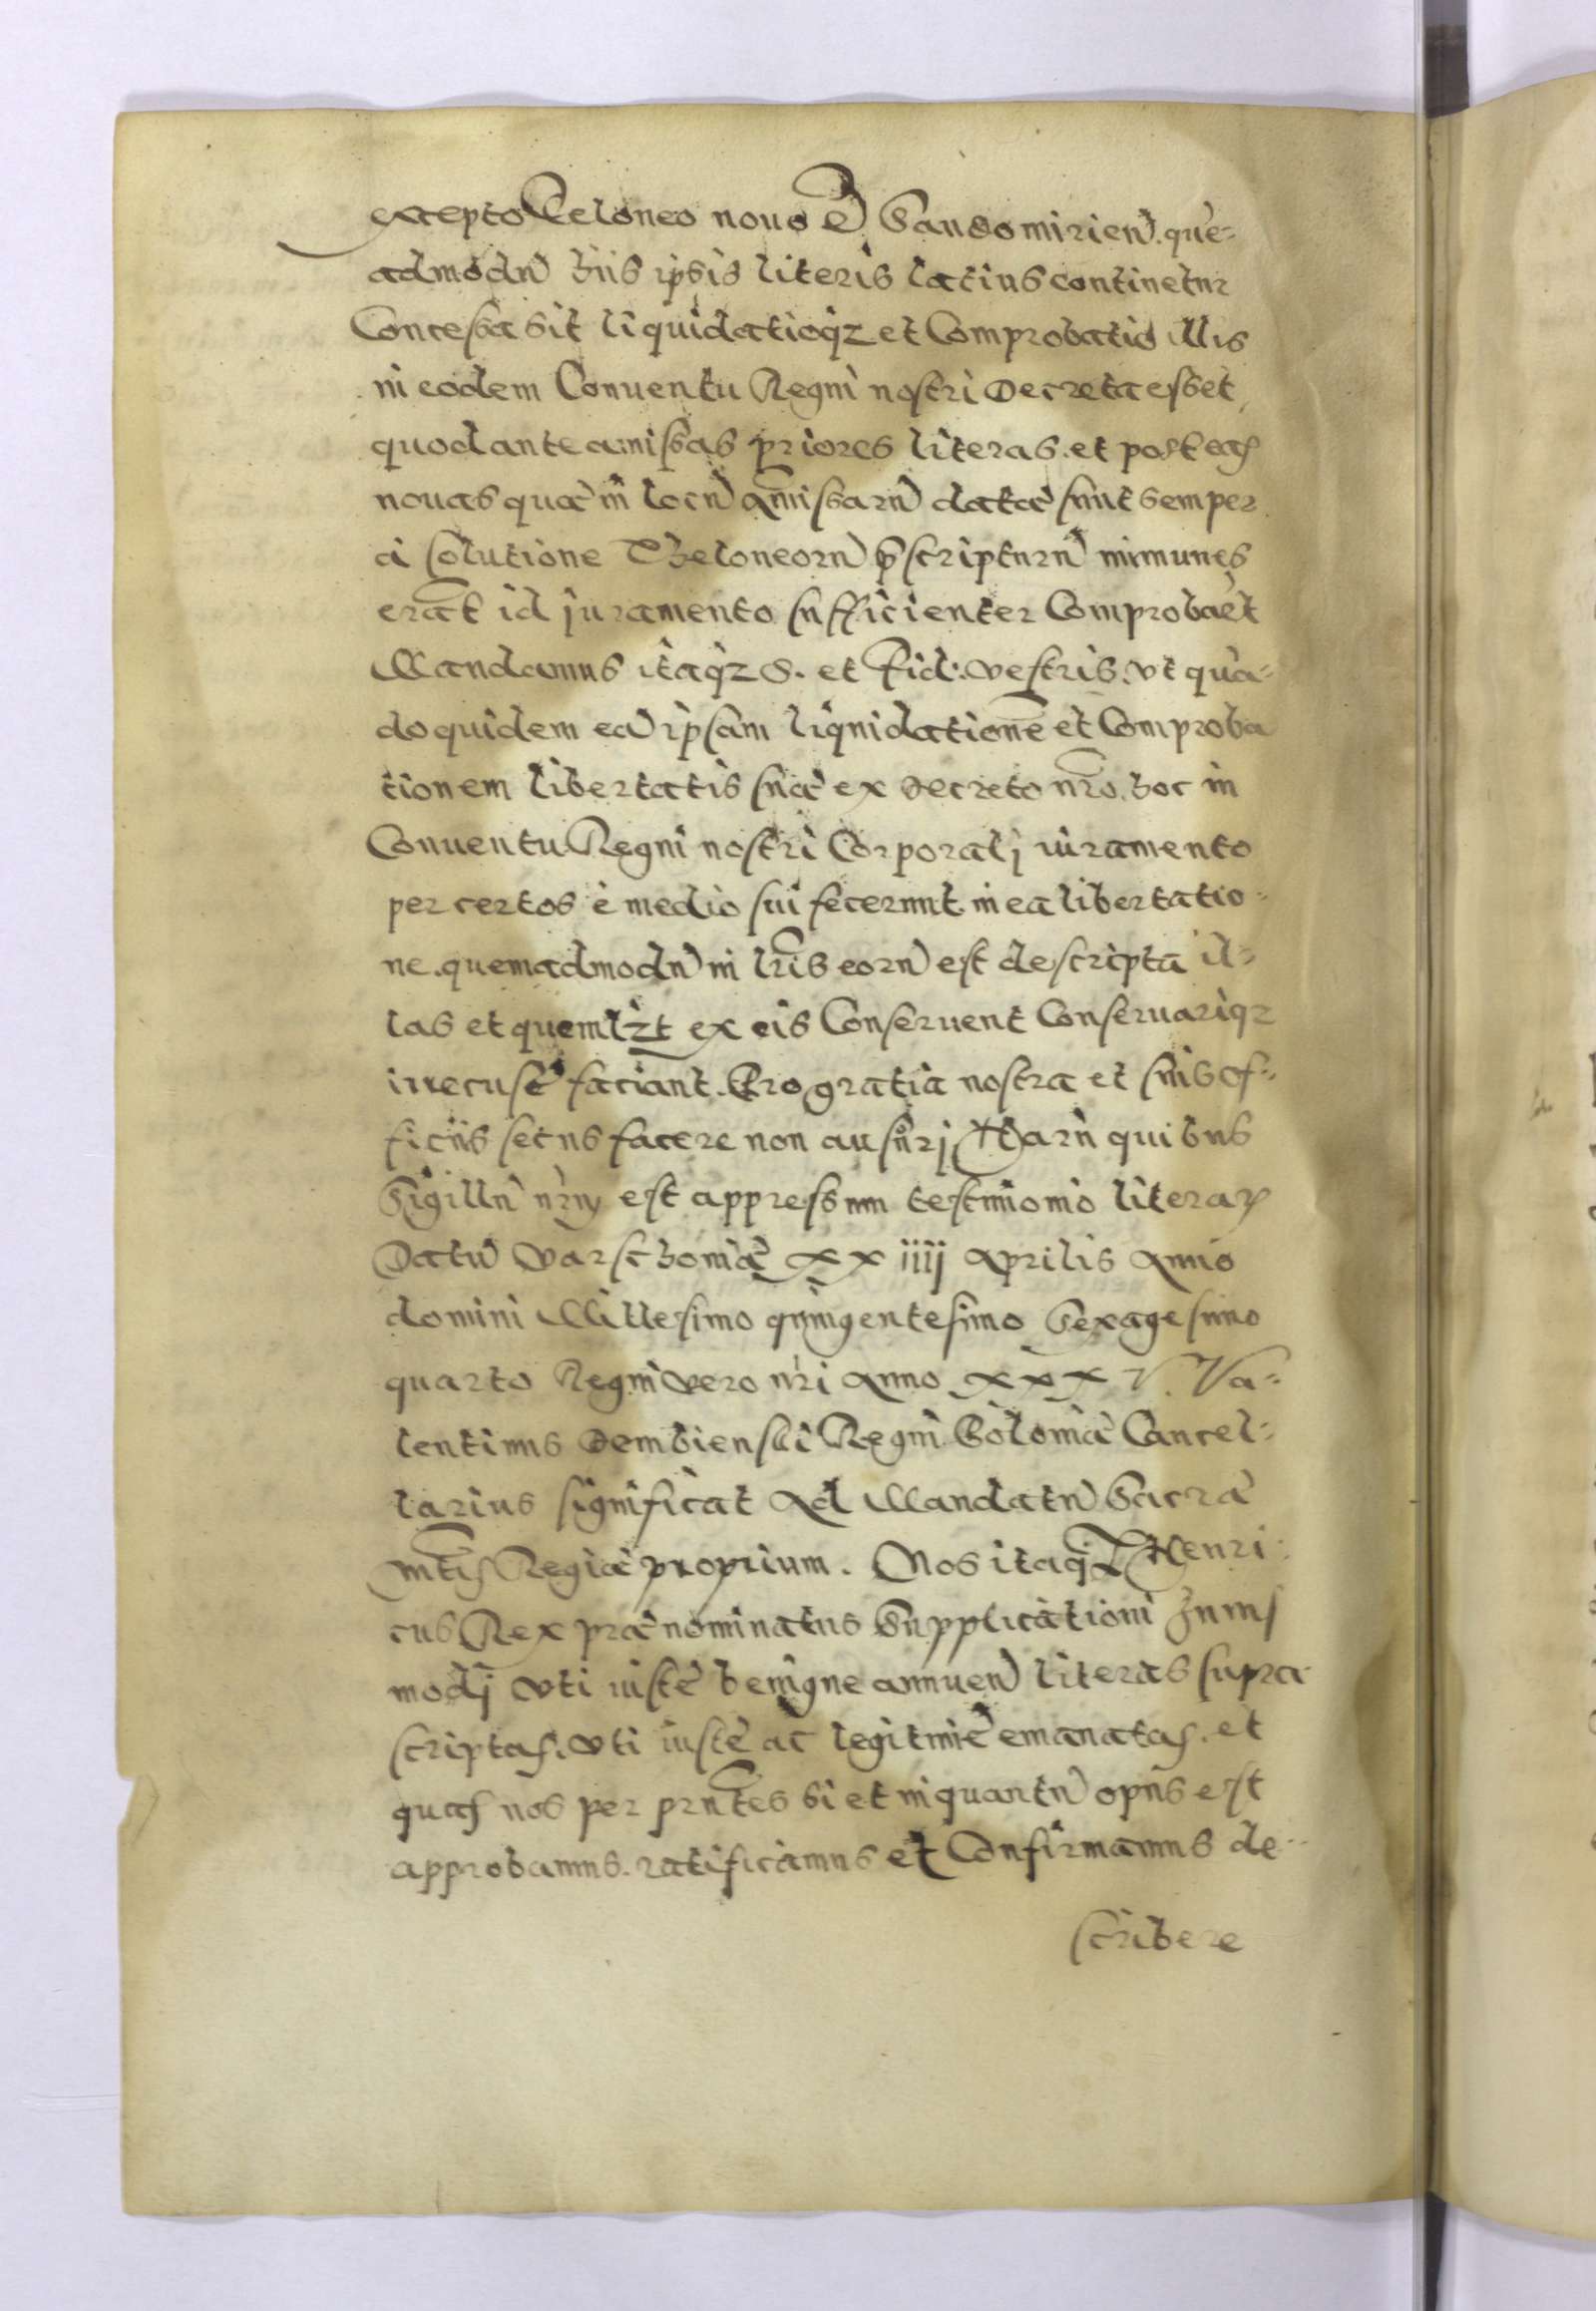 excepto Teloneo nouo et Sandomirień. què=
admodū hiis ipsis literis latius continetur
Concessa sit liquidatioqz et Comprobatio illis
in eodem Conuentu Regni nostri Decreta esset,
quod ante amissas priores literas. et post eas
nouas quæ in locū Amissarū datæ sunt semper
a solutione Theloneorū pscripturū immunes
erāt id juramento sufficienter Comprobāret
Mandamus itaqz S. et Fid: vestris. vt quā=
doquidem eā ipsam liquidationē et Comproba
tionem libertatis suæ ex Decreto nr̄o. hoc in
Conuentu Regni nostri Corporalj iuramento
per certos è medio sui fecerunt. in ea libertatio=
ne. quemadmodū in lr̄is eorū est descripta il=
las et quemlzt ex eis Conseruent Conseruariqz
irrecusè faciant. Pro gratia nostra et suis of=
ficiis secus facere non ausurj Harū quibus
Sigillū nr̄ɱ est appressum testimonio literaꝝ
Datū Varschouiæ XX iiij Aprilis Anno
domini Millesimo quingentesimo Sexagesimo
quarto Regni vero nr̄i Anno XXX V. Va=
lentinus Dembienski Regni Poloniæ Cancel=
larius significat Ad Mandatū Sacræ
Mtis Regiæ proprium. Nos itaqz Henri:
cus Rex prænominatus Supplicationi hujus
modj vti iustè benigne annueń literas supra
scriptas. vti iustè ac legitimè emanatas. et
quas nos per pr̄ntes si et inquantū opus est
approbamus. ratificamus et Confirmamus de=
scribere